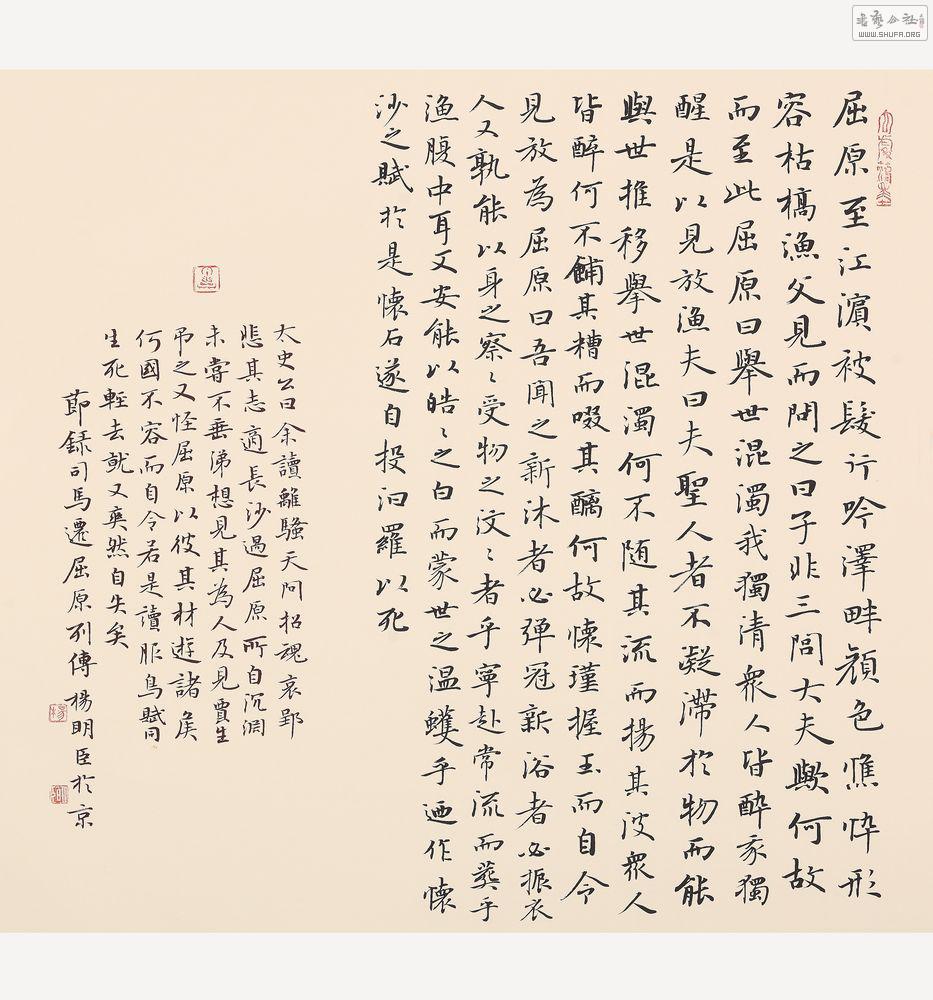 屈原至江濱被髮行吟澤畔顔色憔悴形
容枯槁漁父見而問之曰子非三閭大夫歟何故
而至此屈原曰舉世混濁我獨清衆人皆醉我獨
醒是以見放漁夫曰夫聖人者不凝滯於物而能
與世推移舉世混濁何不随其流而揚其波衆人
皆醉何不餔其糟而啜其醨何故懷瑾握玉而自令
見放為屈原曰吾聞之新沐者必彈冠新浴者必振衣
人又孰能以身之察々受物之汶々者乎寧赴常流而葬乎
漁腹中耳又安能以皓々之白而蒙世之温蠖乎迺作懷
沙之賦於是懷石遂自投汨羅以死
太史公曰余讀離騷天问招魂哀郢
悲其志適長沙過屈原所自沉淵
未嘗不垂涕想見其為人及見賈生
吊之又怪屈原以彼其材遊諸侯
何國不容而自令若是讀服鳥賦同
生死輕去就又爽然自失矣
節録司馬遷屈原列傳楊明臣於京
書藝公社
www.SHUFA.ORG